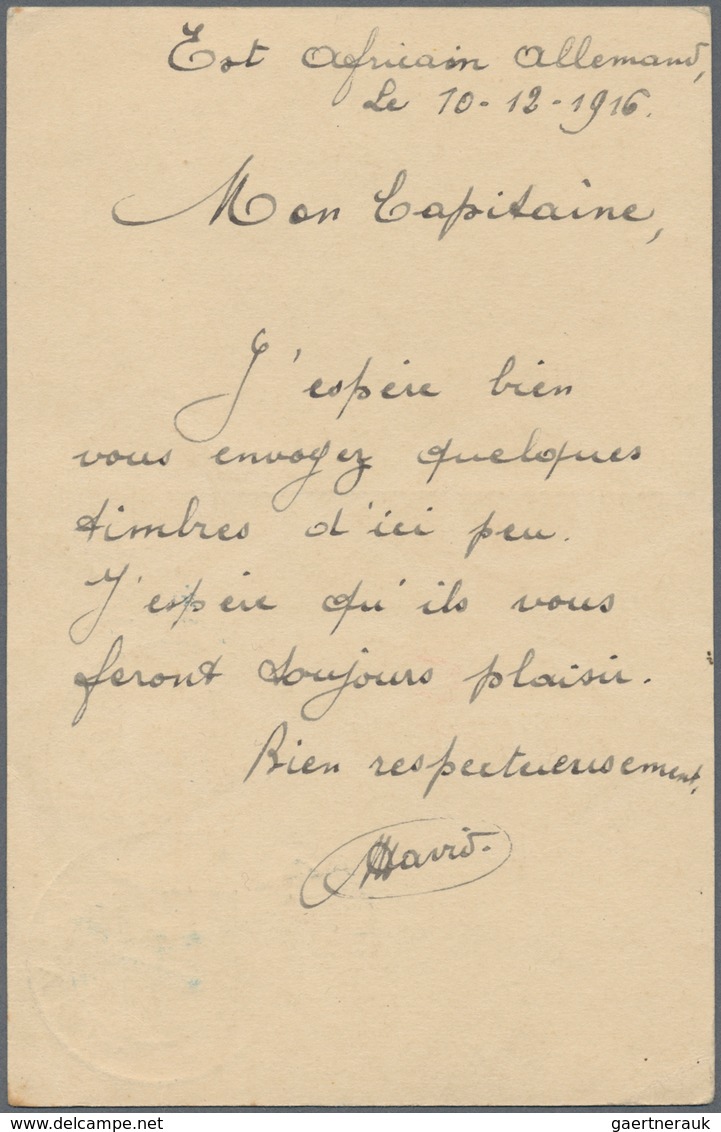 Est Africain Allemand,
Le 10-12-1916.
Mon Capitaine,
J'espère bien
vous envoyez quelques
timbres d'ici peu.
J'espère qu'ils vous
feront toujours plaisir.
Bien respectueusement,
gaertnerauk